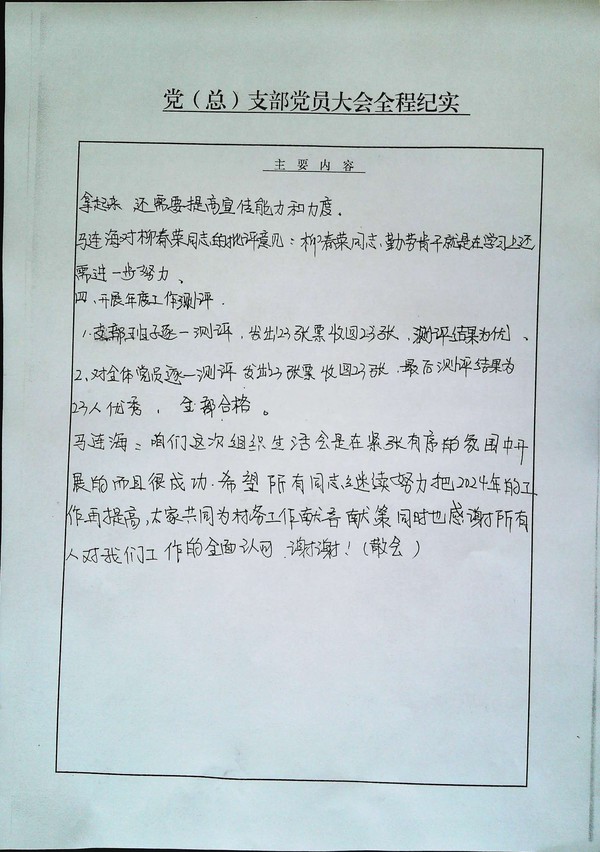 党（总）支部党员大会全程纪实
主要内容
拿起来 还需要提高宣传能力和力度.
马连海对柳春荣同志的批评意见：柳春荣同志、勤劳肯干就是在学习上还
需进一步努力、
四、开展年度工作测评.
1.支部班子逐一测评，发出23张票收回23张、测评结果为优、
2、对全体党员逐一测评 发出23张票收回23张、最后测评结果为
23人优秀，全部合格。
马连海：咱们这次组织生活会是在紧张有序的氛围中开
展的而且很成功.希望所有同志继续努力把2024年的工
作再提高,大家共同为村务工作献言献策同时也感谢所有
人对我们工作的全面认可 谢谢！(散会)